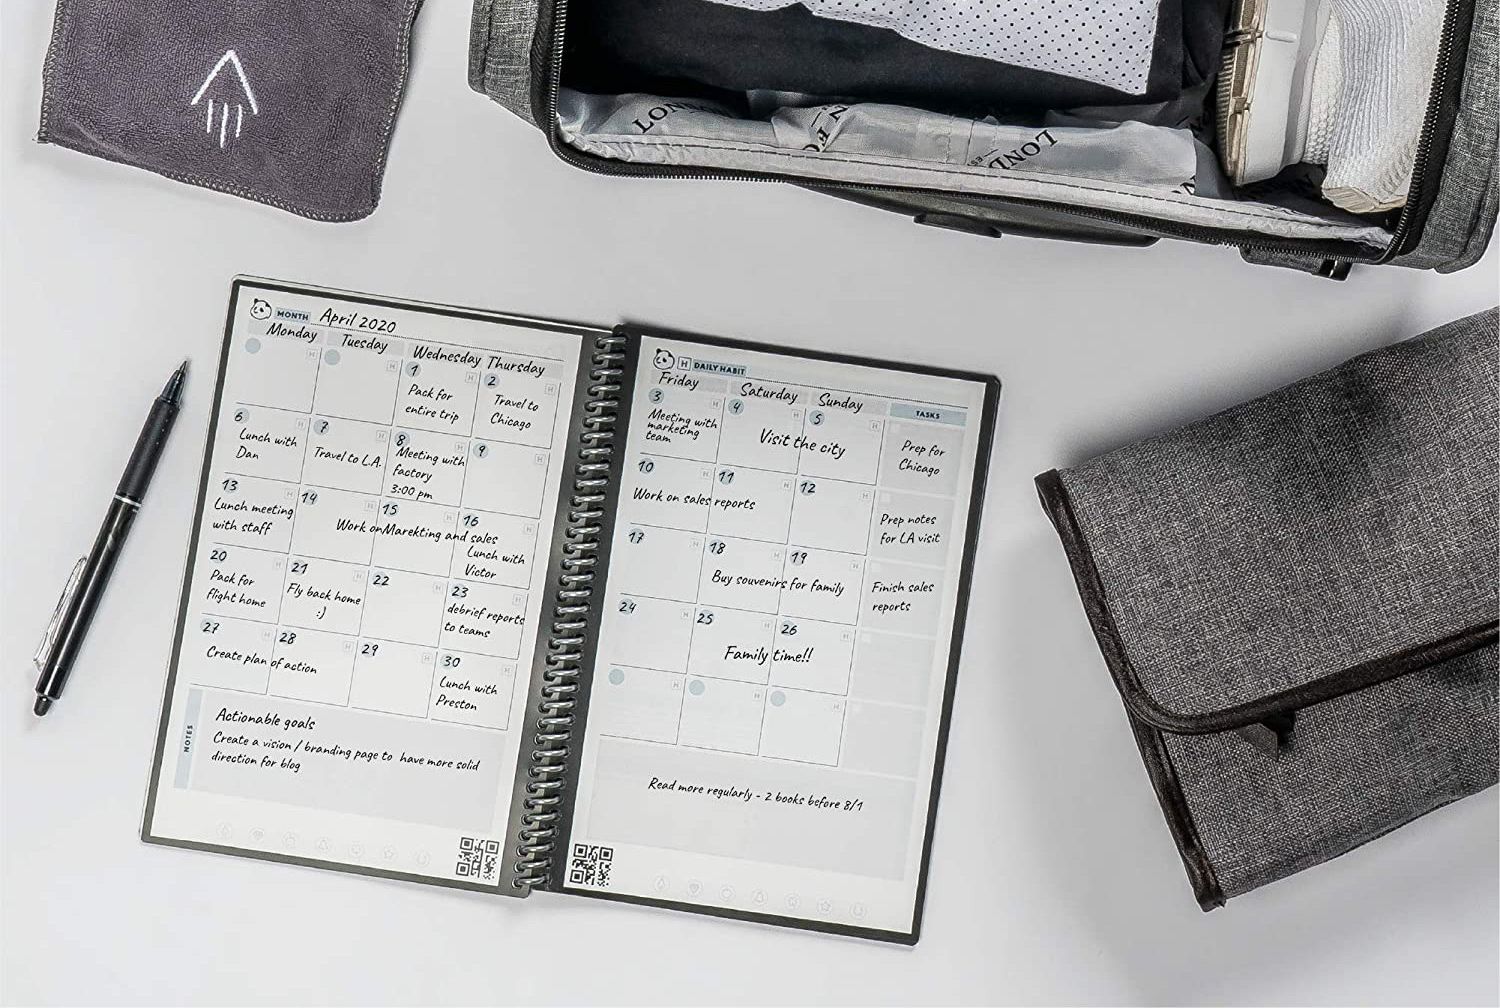 LONDON
N FO
LOND
ES
MONTH April 2020
Monday Tuesday Wednesday Thursday
H H H H
1 2
Pack for
entire trip
Travel to
Chicago
6 7 8 9
Lunch with
Dan
Travel to L.A.
Meeting with
factory
3:00 pm
13 14 15 16
Lunch meeting
with staff
Work on Marekting and sales
Lunch with
Victor
20 21 22 23
Pack for
flight home
Fly back home
:)
debrief reports
to teams
27 28 29 30
Create plan of action
Lunch with
Preston
NOTES
Actionable goals
Create a vision / branding page to have more solid
direction for blog
H DAILY HABIT
Friday Saturday Sunday
TASKS
3 4 5
Meeting with
marketing
team
Visit the city
Prep for
Chicago
10 11 12
Work on sales reports
Prep notes
for LA visit
17 18 19
Buy souvenirs for family
Finish sales
reports
24 25 26
Family time!!
Read more regularly - 2 books before 8/1